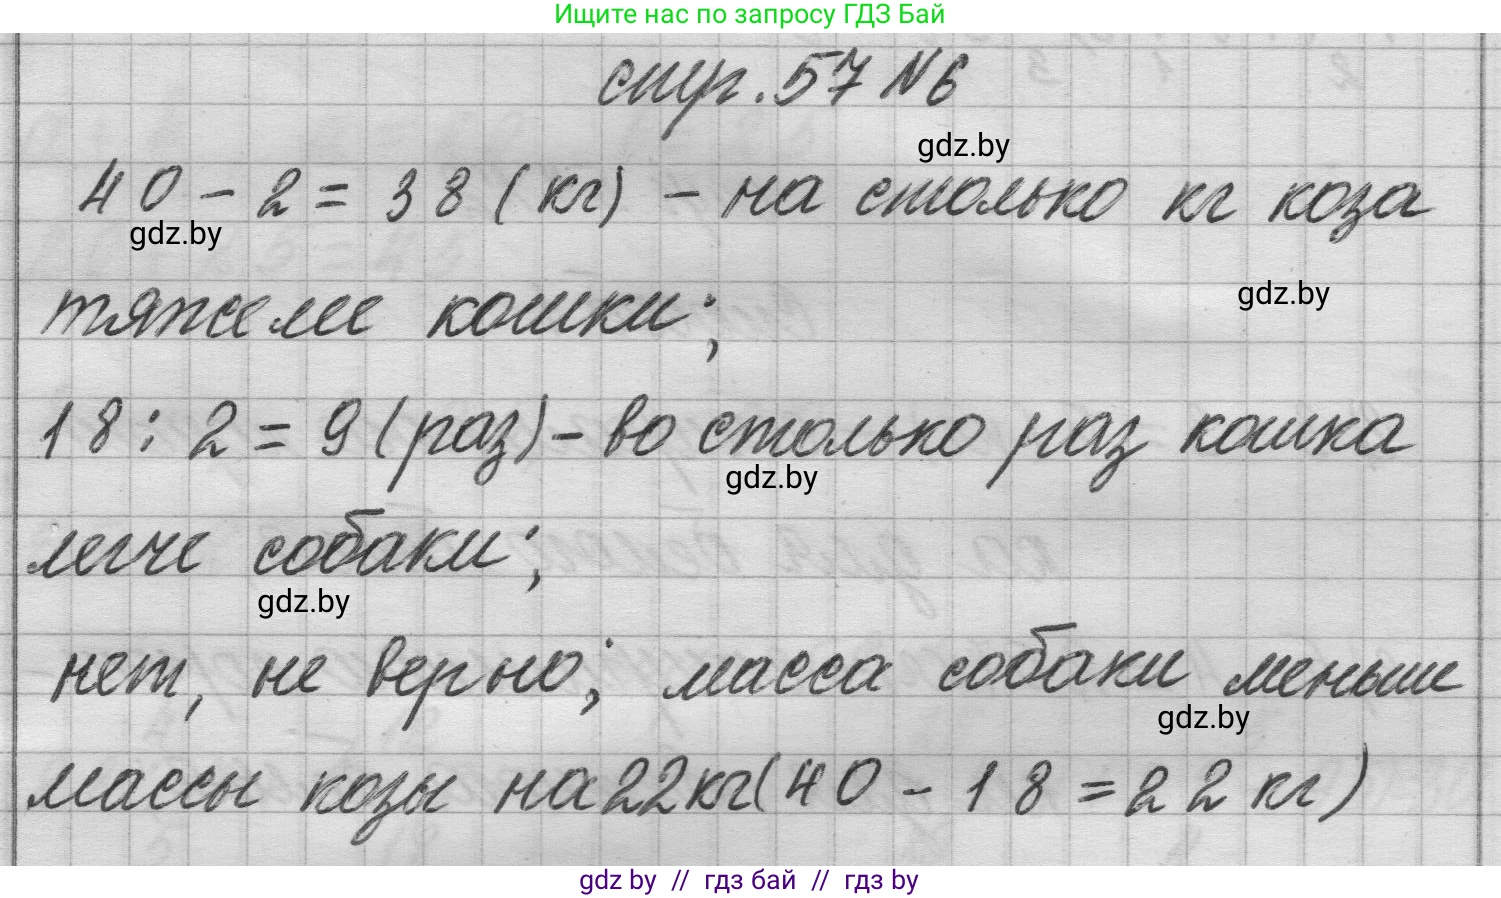 Ищите нас по запросу ГДЗ Бай
стр. 57 № 6
gdz.by
40 - 2 = 38 (кг) - на столько кг коза
gdz.by
gdz.by
тяжелее кошки;
18 : 2 = 9 (раз) - во столько раз кошка
gdz.by
легче собаки;
gdz.by
нет, не верно; масса собаки меньше
gdz.by
массы козы на 22 кг (40 - 18 = 22 кг)
gdz by // гдз бай // гдз by